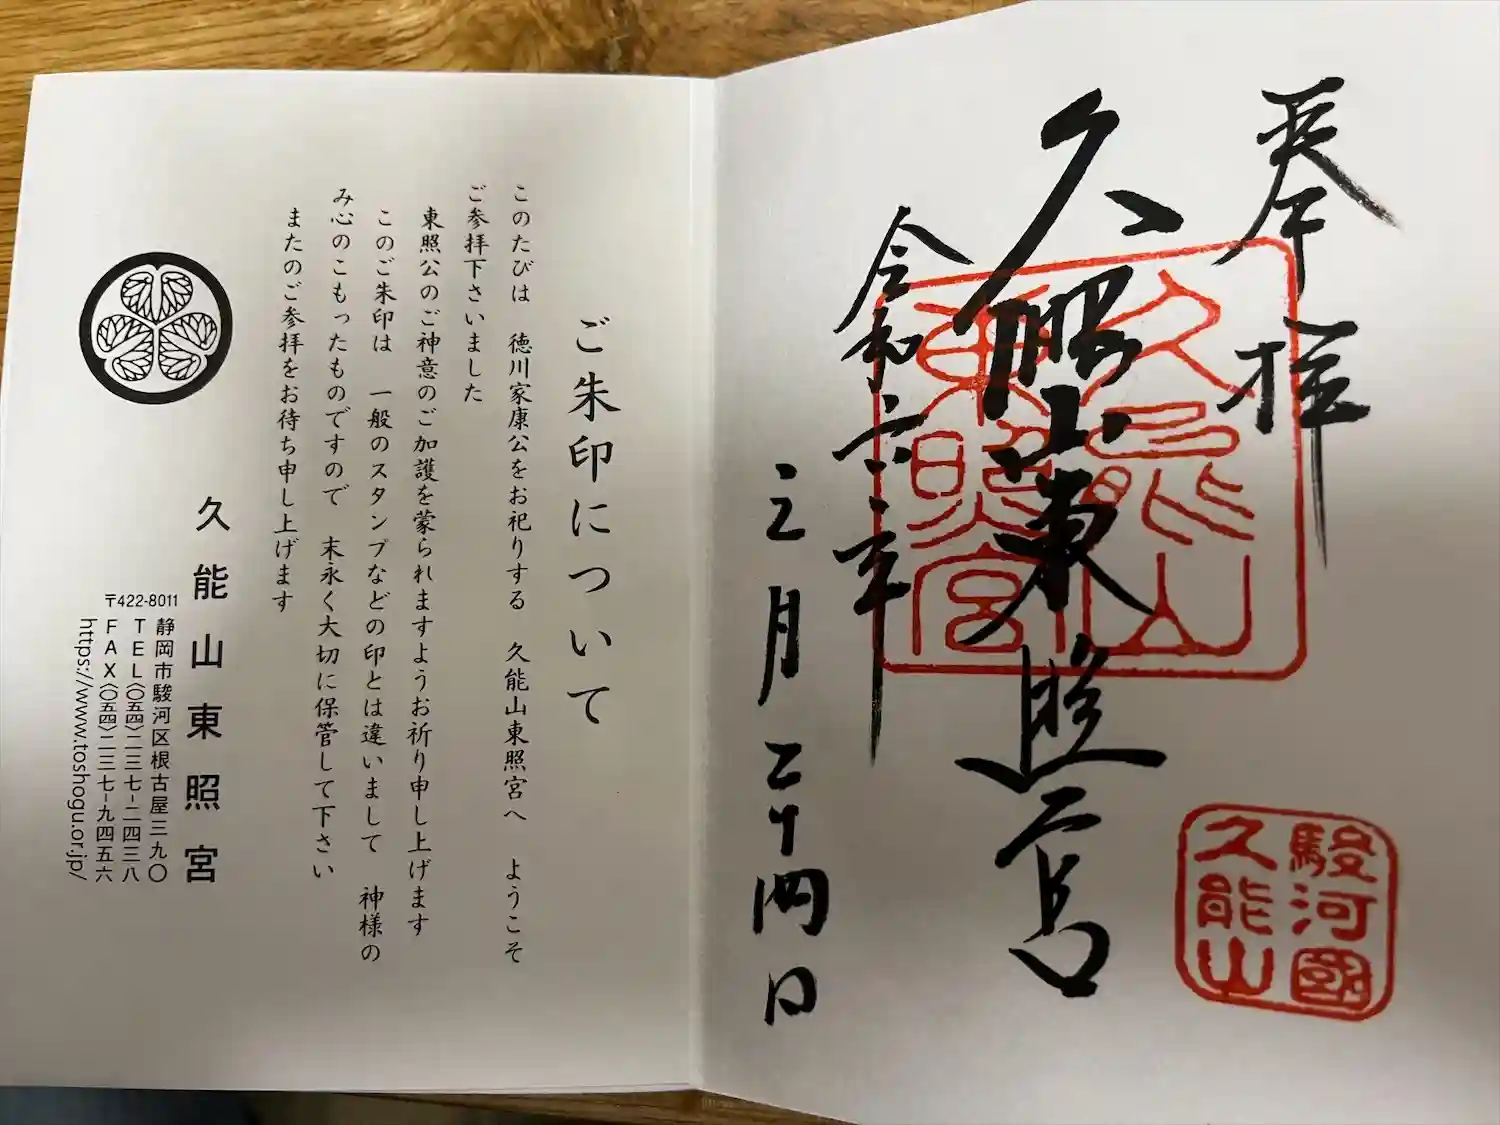 奉拝
久能山東照宮
久能山
東照宮
駿河國
久能山
令和六年
三月二十四日
ご朱印について
このたびは 徳川家康公をお祀りする 久能山東照宮へ ようこそ
ご参拝下さいました
東照公のご神意のご加護を蒙られますようお祈り申し上げます
このご朱印は 一般のスタンプなどの印とは違いまして 神様の
み心のこもったものですので 末永く大切に保管して下さい
またのご参拝をお待ち申し上げます
久能山東照宮
〒422-8011
静岡市駿河区根古屋三九〇
TEL〈〇五四〉二三七-二四三八
FAX〈〇五四〉二三七-九四五六
https://www.toshogu.or.jp/